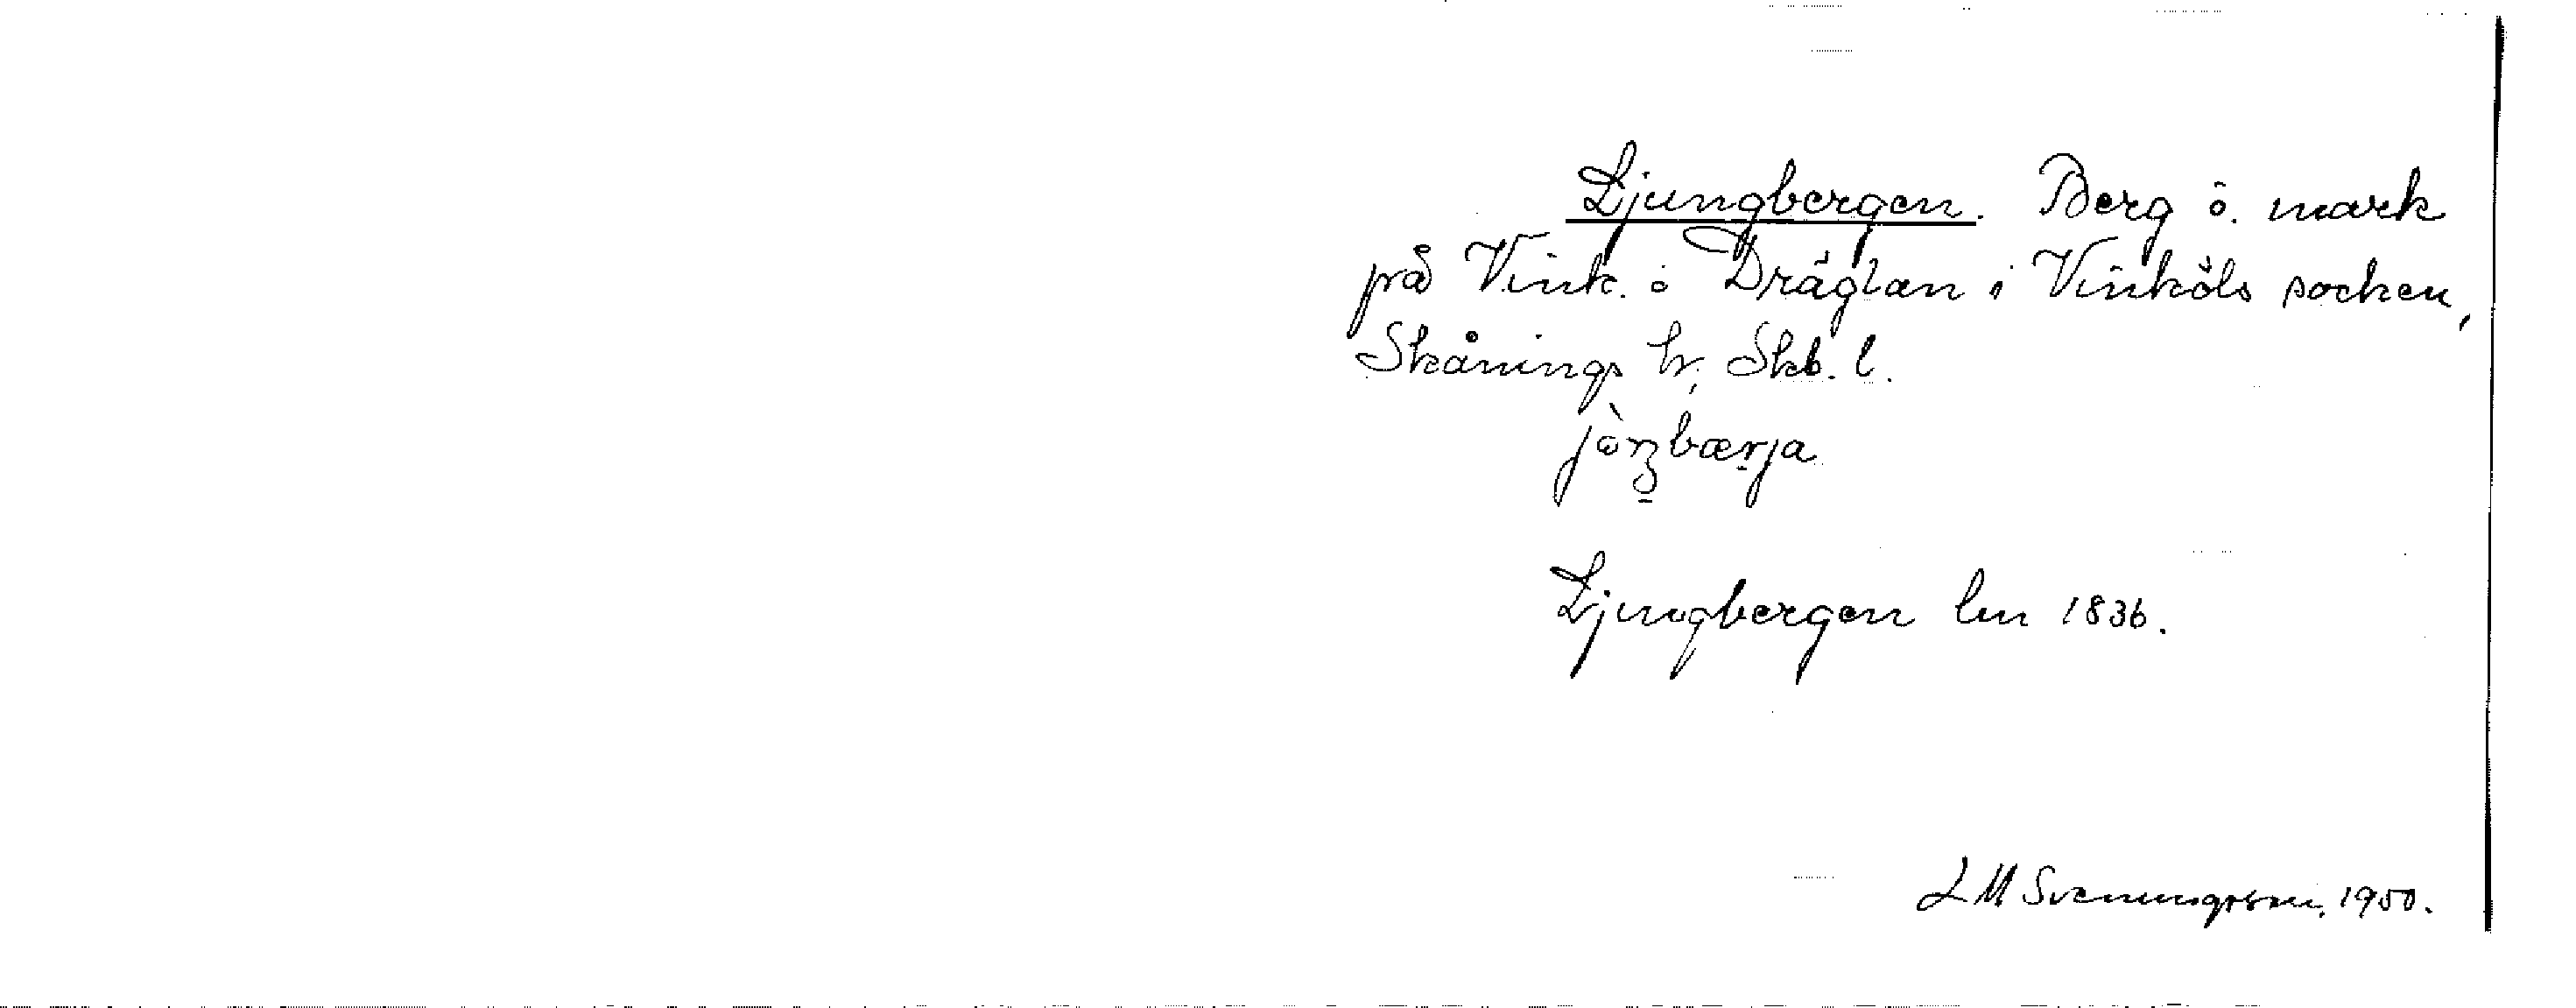 Ljungbergen. Berg ö. mark
på Vink. ö Dräglan i Vinköls socken,
Skånings hr, Skb. l.
Ljungbergen lm 1836.
L M Svenungsson, 1950.